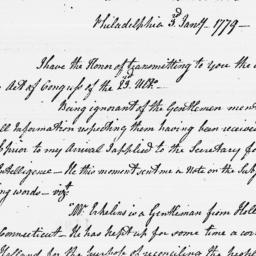 Philadelphia 3d. Jany. 1779—
I have the Honor of transmitting to you the
Act of Congress of the 23d. Ulto.—
Being ignorant of the Gentlemen men
ll Information respecting them having been received
prior to my Arrival I applied to the Secretary for
ntelligence— He this moment sent me a Note on the Subj
ing words— vizt.
"Mr. Erkelens is a Gentleman from Holl
Connecticut— He has kept up for some time a corr
Holland for the purpose of reconciling the people